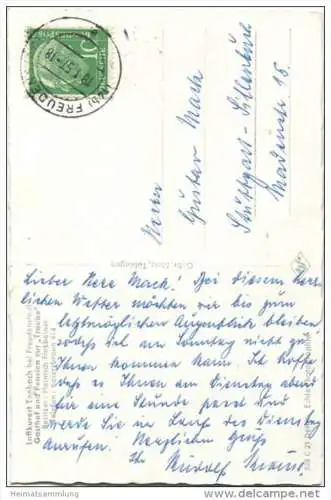 Luftkurort Tonbach bei Freudenstadt
Gasthof und Pension zur "Traube"
Besitzer: Heinrich Finkbeiner
Gebr. Metz, Tübingen
Herrn
Gustav Mack
Stuttgart-Sillenbuch
Lieber Herr Mack! Bei diesem herr-
lichen Wetter möchten wir bis zum
letztmöglichen Augenblick bleiben
sodass ich am Sonntag nicht zu
Ihnen kommen kann. Ich hoffe
dass es Ihnen am Dienstag abend
für eine Stunde passt und
werde Sie im Lauf des Dienstag
anrufen. Herzlichen Gruss
Ihr Rudolf
© Heimatsammlung
www.delcampe.net